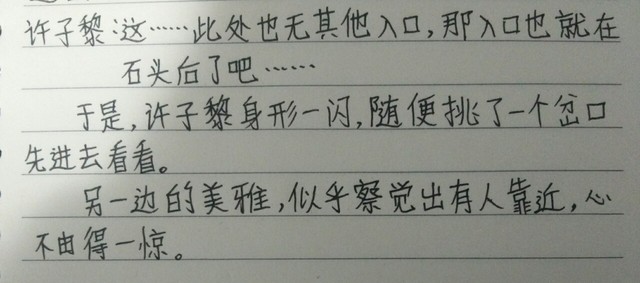 许子黎:这……此处也无其他入口,那入口也就在
石头后了吧……
于是,许子黎身形一闪,随便挑了一个岔口
先进去看看。
另一边的美雅,似乎察觉出有人靠近,心
不由得一惊。